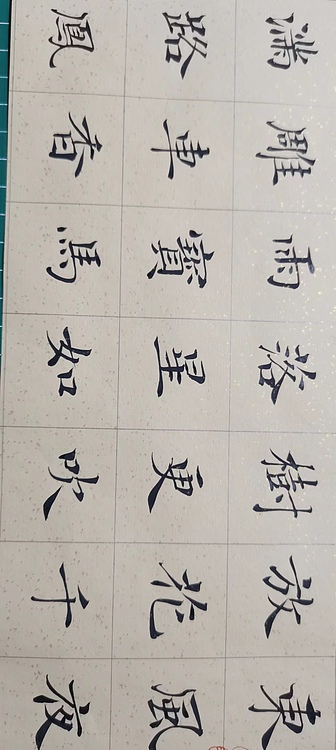 東風夜
放花千
樹更吹
落星如
雨寶馬
雕車香
滿路鳳